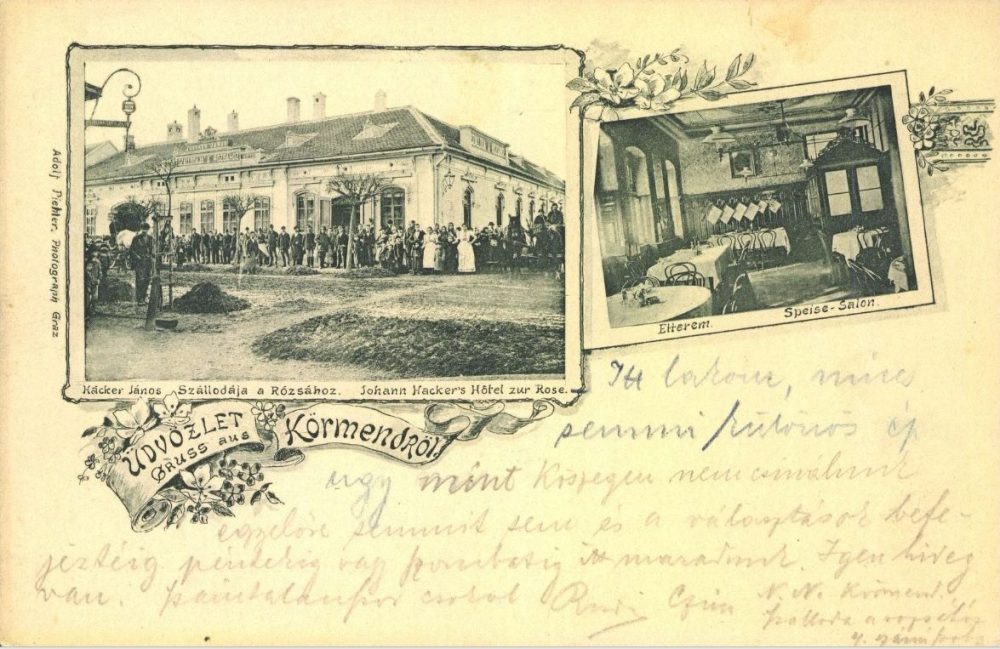 Adolf Pichler, Photograph Graz
Häcker János Szállodája a Rózsához. Johann Hacker's Hôtel zur Rose.
Etterem. Speise-Salon.
ÜDVÖZLET
Gruss aus
Körmendről!
Itt lakom, nincs
semmi különös ép
úgy mint Kőszegen nem csinálunk
egyelőre semmit sem és a választások befe-
jeztéig péntekig vagy szombatig itt maradunk. Igen hideg
van. számtalanszor csókol Rudi Czim N. N. Körmend.
szálloda a rózsához
szám szoba